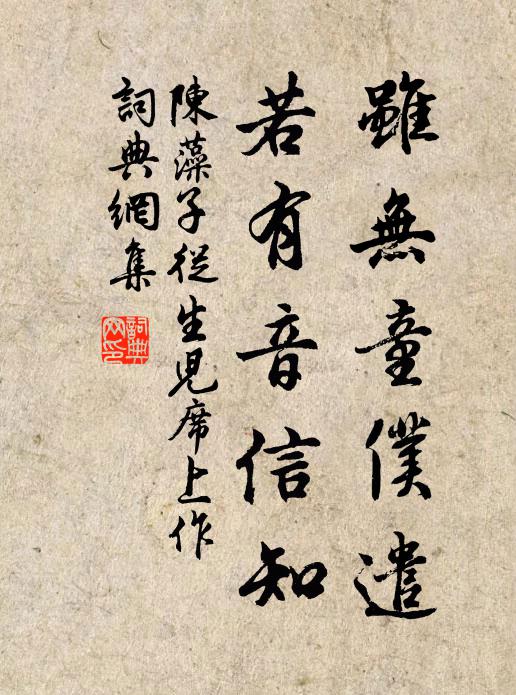 雖無童僕遣
若有音信知
陳藻子從生兒席上作
詞典網集
詞典網印